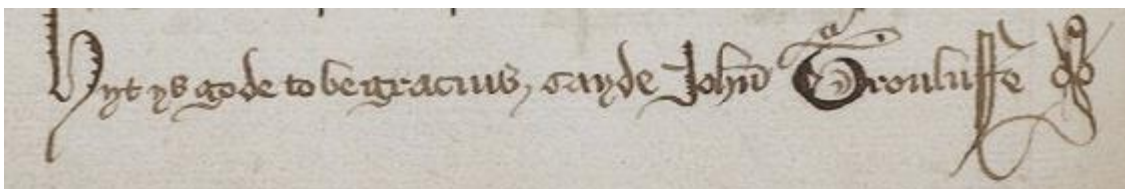 Hyt ys gode to be gracius, sayde John Grouluffe